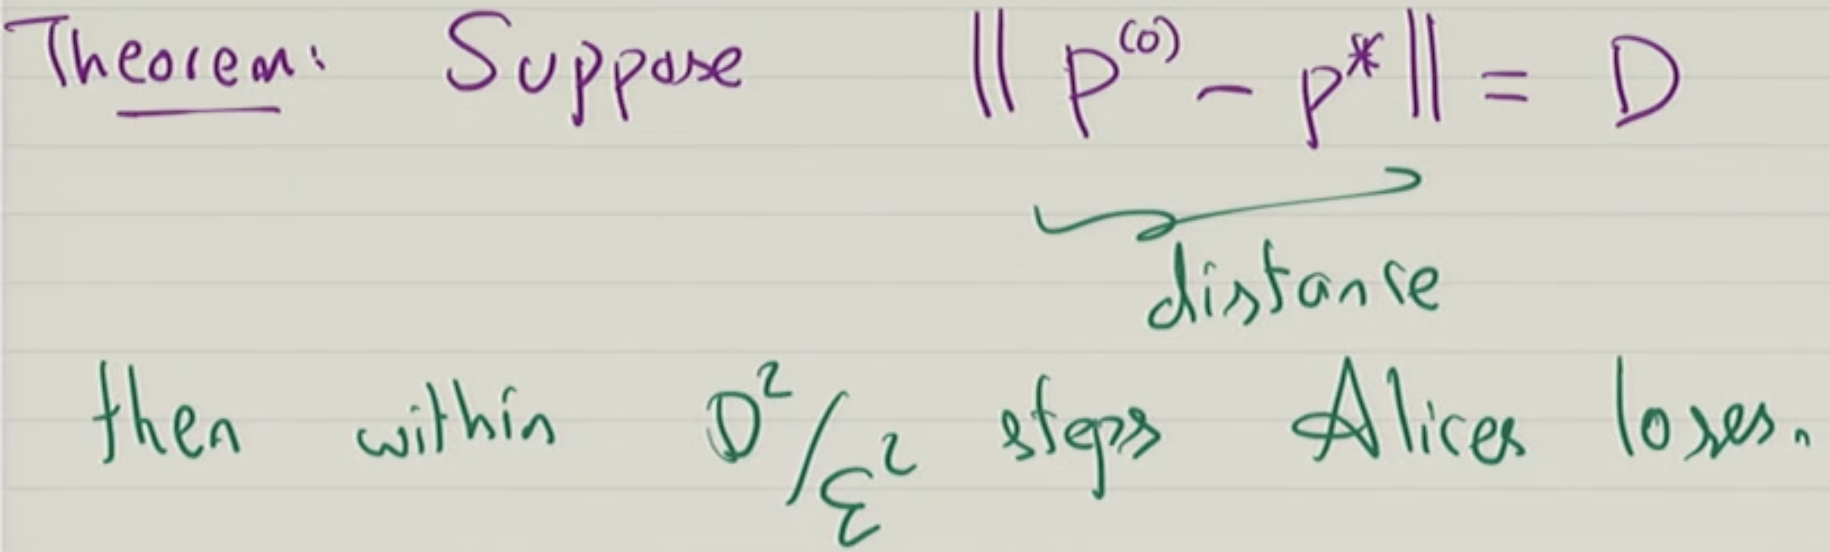 Theorem: Suppose || p^(0) - p* || = D
distance
then within D²/ε² steps Alices loses.